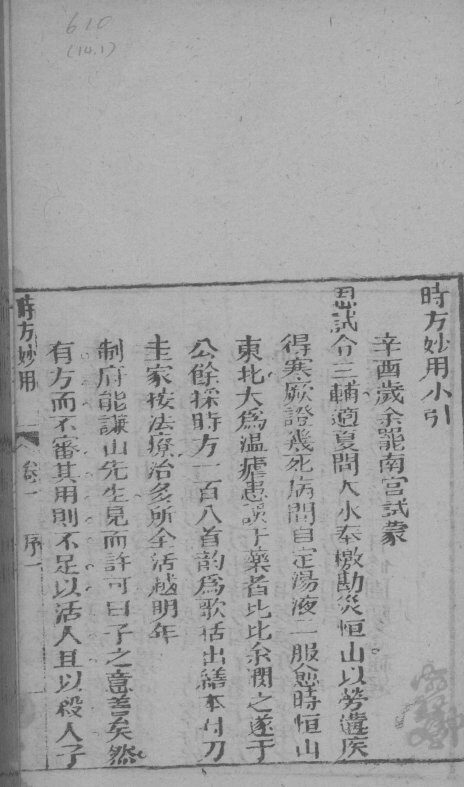 610
(14.1)
時方妙用小引
辛酉歲余罷南宮試蒙
恩試令三輔適夏間大水奉檄勘災恒山以勞遘疾
得寒厥證幾死病間自定湯液二服愈時恒山
東北大為溫瘧患誤于藥者比比余憫之遂于
公餘採時方一百八首韵為歌括出繕本付刀
圭家按法療治多所全活越明年
制府能謙山先生見而許可曰子之意善矣然
有方而不審其用則不足以活人且以殺人子
時方妙用 卷一 序一